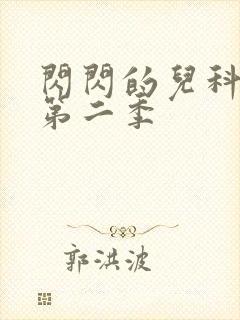 閃閃的兒科
第二季
郭洪波